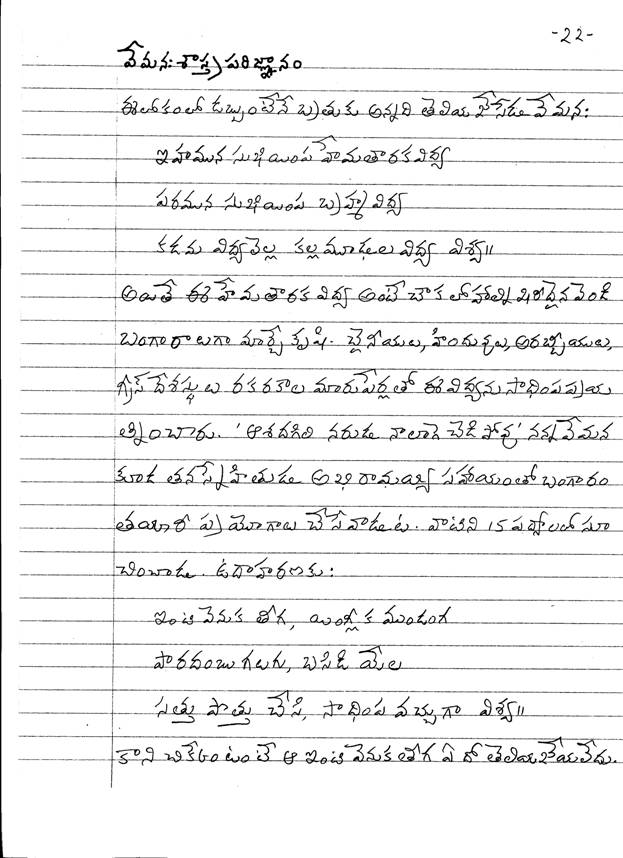 -22-
వేమన:శాస్త్ర పరిజ్ఞానం
ఈలోకంలో డబ్బుంటేనే బ్రతుకు అన్నది తెలియ జేసేడు వేమన:
ఇహమున సుఖియింప హేమతారక విద్య
పరమున సుఖియింప బ్రహ్మవిద్య
కడమ విద్యలెల్ల కల్ల మూఢుల విద్య విశ్వ॥
అయితే ఈ హేమతారక విద్య అంటే చౌక లోహాల్ని ఖరీదైన వెండి
బంగారాలుగా మార్చే కృషి. చైనీయులు, హిందువులు, అరబ్బీయులు,
గ్రీస్ దేశస్థులు రకరకాల మారుపేర్లతో ఈ విద్యను సాధింప ప్రయ
త్నించారు. 'ఆశదగిలి నరుడు నాలాగె చెడిపోవు' నన్న వేమన
కూడ తనస్నేహితుడు అభిరామయ్య సహాయంతో బంగారం
తయారీ ప్రయోగాలు చేసేవాడుట. వాటిని 15 పద్యాలలో సూ
చించాడు. ఉదాహరణకు:
ఇంటి వెనుక తోగ, యింగ్లీక ముండంగ
పాదరంబు గలుగు, బసిడి యేల
సత్తు పొత్తు చేసి, సాధింప వచ్చుగా విశ్వ॥
కాని చికేటంటంటే ఆ ఇంటి వెనుక తోగ ఏదో తెలియజేయలేదు.